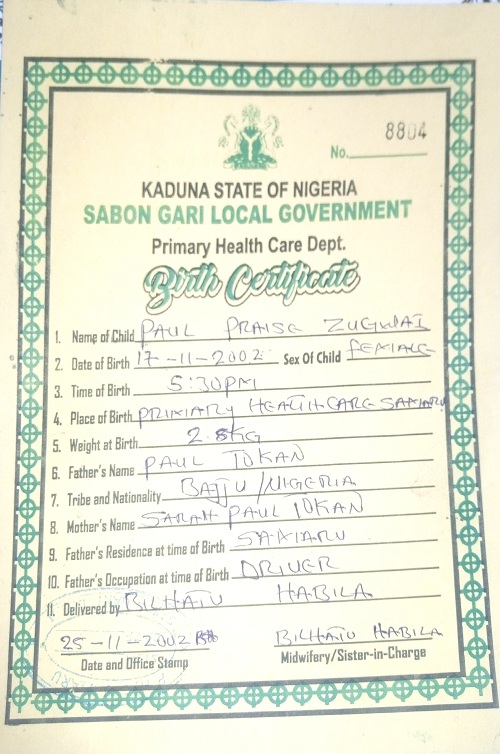 8804
No.
KADUNA STATE OF NIGERIA
SABON GARI LOCAL GOVERNMENT
Primary Health Care Dept.
Birth Certificate
1. Name of Child PAUL PRAISE ZUGWAI
2. Date of Birth 17-11-2002 Sex Of Child FEMALE
3. Time of Birth 5:30PM
4. Place of Birth PRIMARY HEALTH CARE SAMARU
5. Weight at Birth 2.8KG
6. Father's Name PAUL TOKAN
7. Tribe and Nationality BAJJU/NIGERIA
8. Mother's Name SARAH PAUL TOKAN
9. Father's Residence at time of Birth SAMARU
10. Father's Occupation at time of Birth DRIVER
11. Delivered by BILHATU HABILA
25-11-2002 BILHATU HABILA
Date and Office Stamp Midwifery/Sister-in-Charge